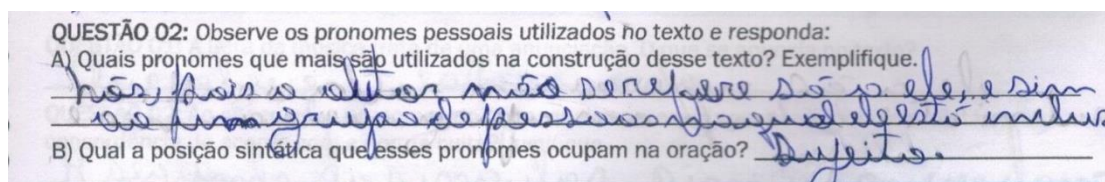 QUESTÃO 02: Observe os pronomes pessoais utilizados no texto e responda:
A) Quais pronomes que mais são utilizados na construção desse texto? Exemplifique.
nós, pois o altor não se refere só a ele, e sim
ao um grupo de pessoas da qual ele está inclus
B) Qual a posição sintática que esses pronomes ocupam na oração? Sujeito.